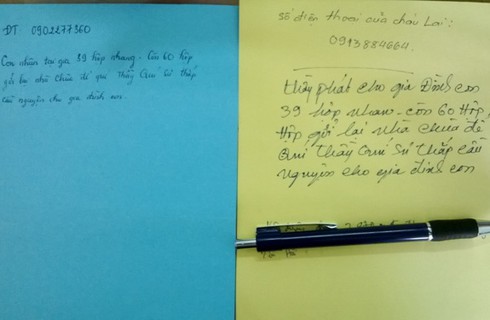 ĐT: 0902277360
Con nhận tại gia 39 hộp nhang - Còn 60 hộp
gửi lại nhà chùa để quí Thầy Quí Sư thắp
cầu nguyện cho gia đình con.
Số điện thoại của cháu Lai:
0913884664.
thầy phát cho gia Đình con
39 hộp nhan - còn 60 Hộp,
Hộp gửi lại nhà chùa để
Quí Thầy Quí Sư Thắp cầu
nguyện cho gia đình con